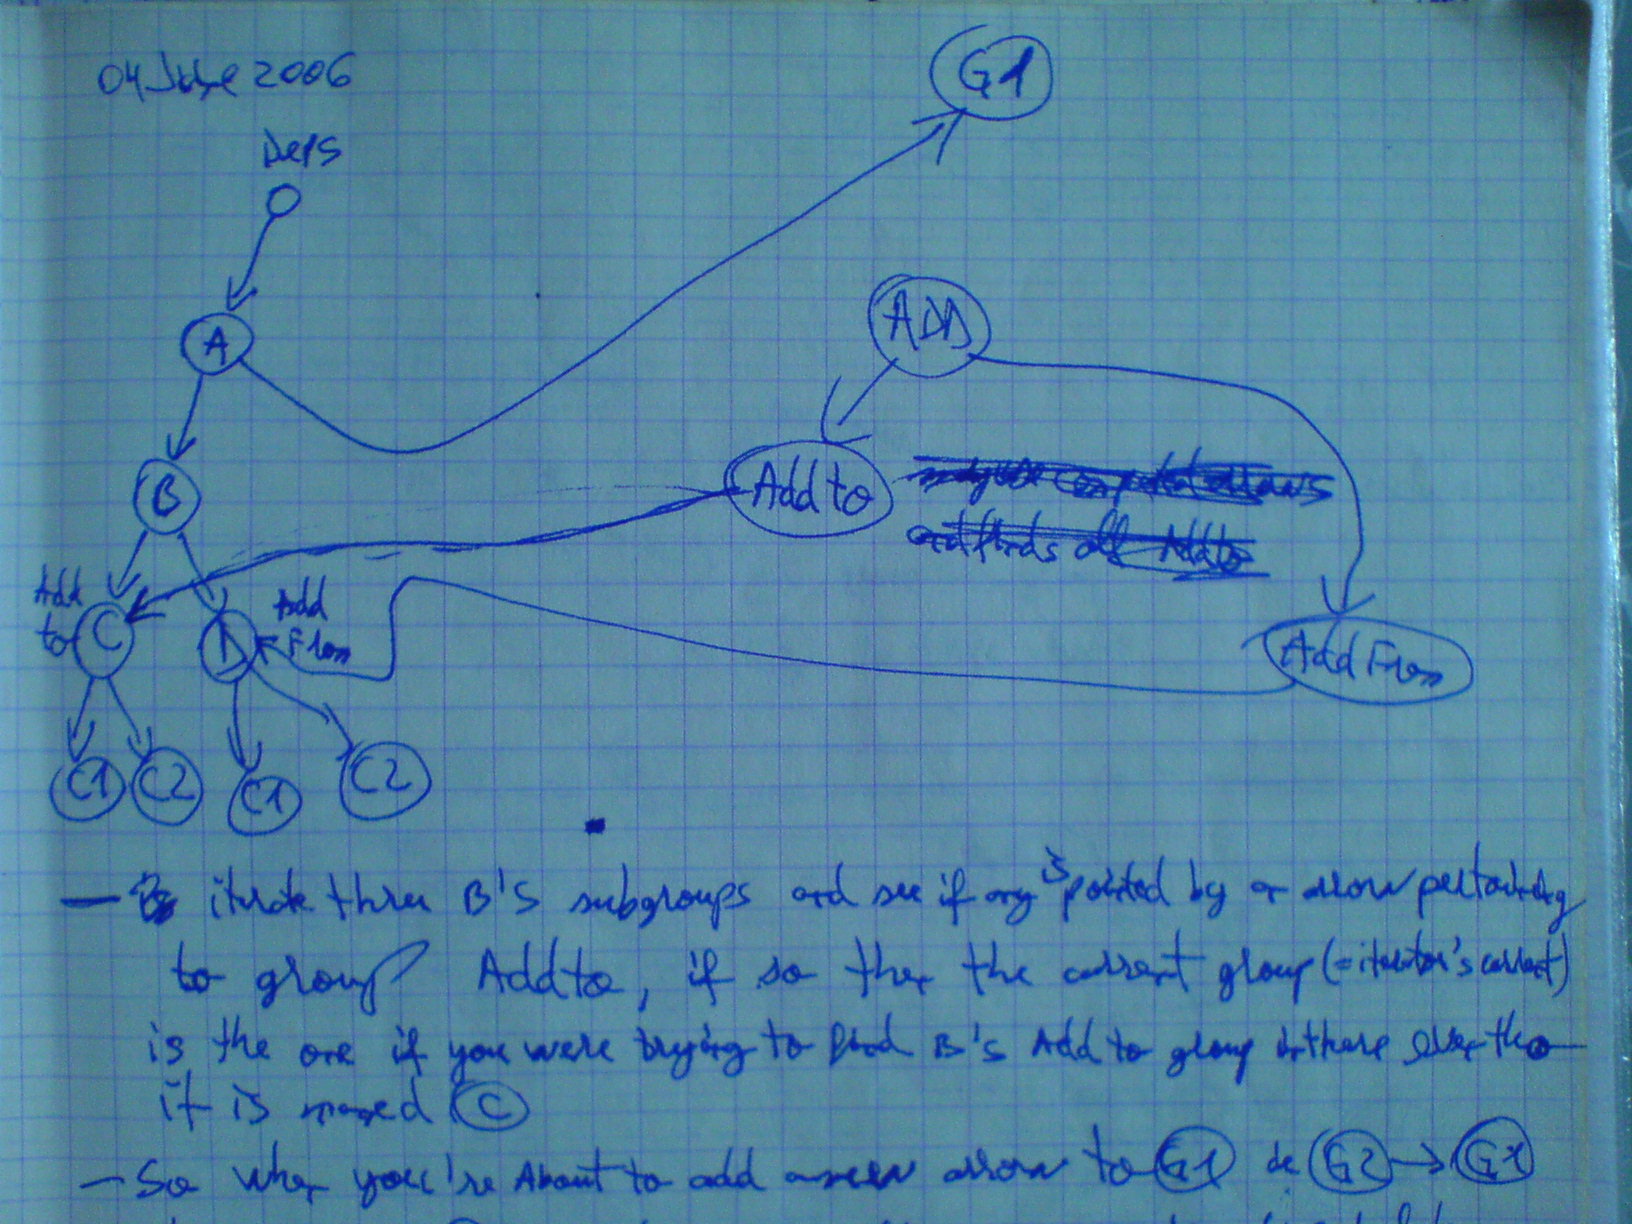 04 June 2006
G1
Deps
A
ADD
B
Add to
Add
to
C
D
Add
From
Add From
C1 C2 C1 C2
— iterate thru B's subgroups and see if any is pointed by an arrow pertaining
to group Add to, if so then the current group (= iterator's current)
is the one if you were trying to find B's Add to group in there even tho
it is named C
— So when you're about to add a new arrow to G1 ie G2 → G1